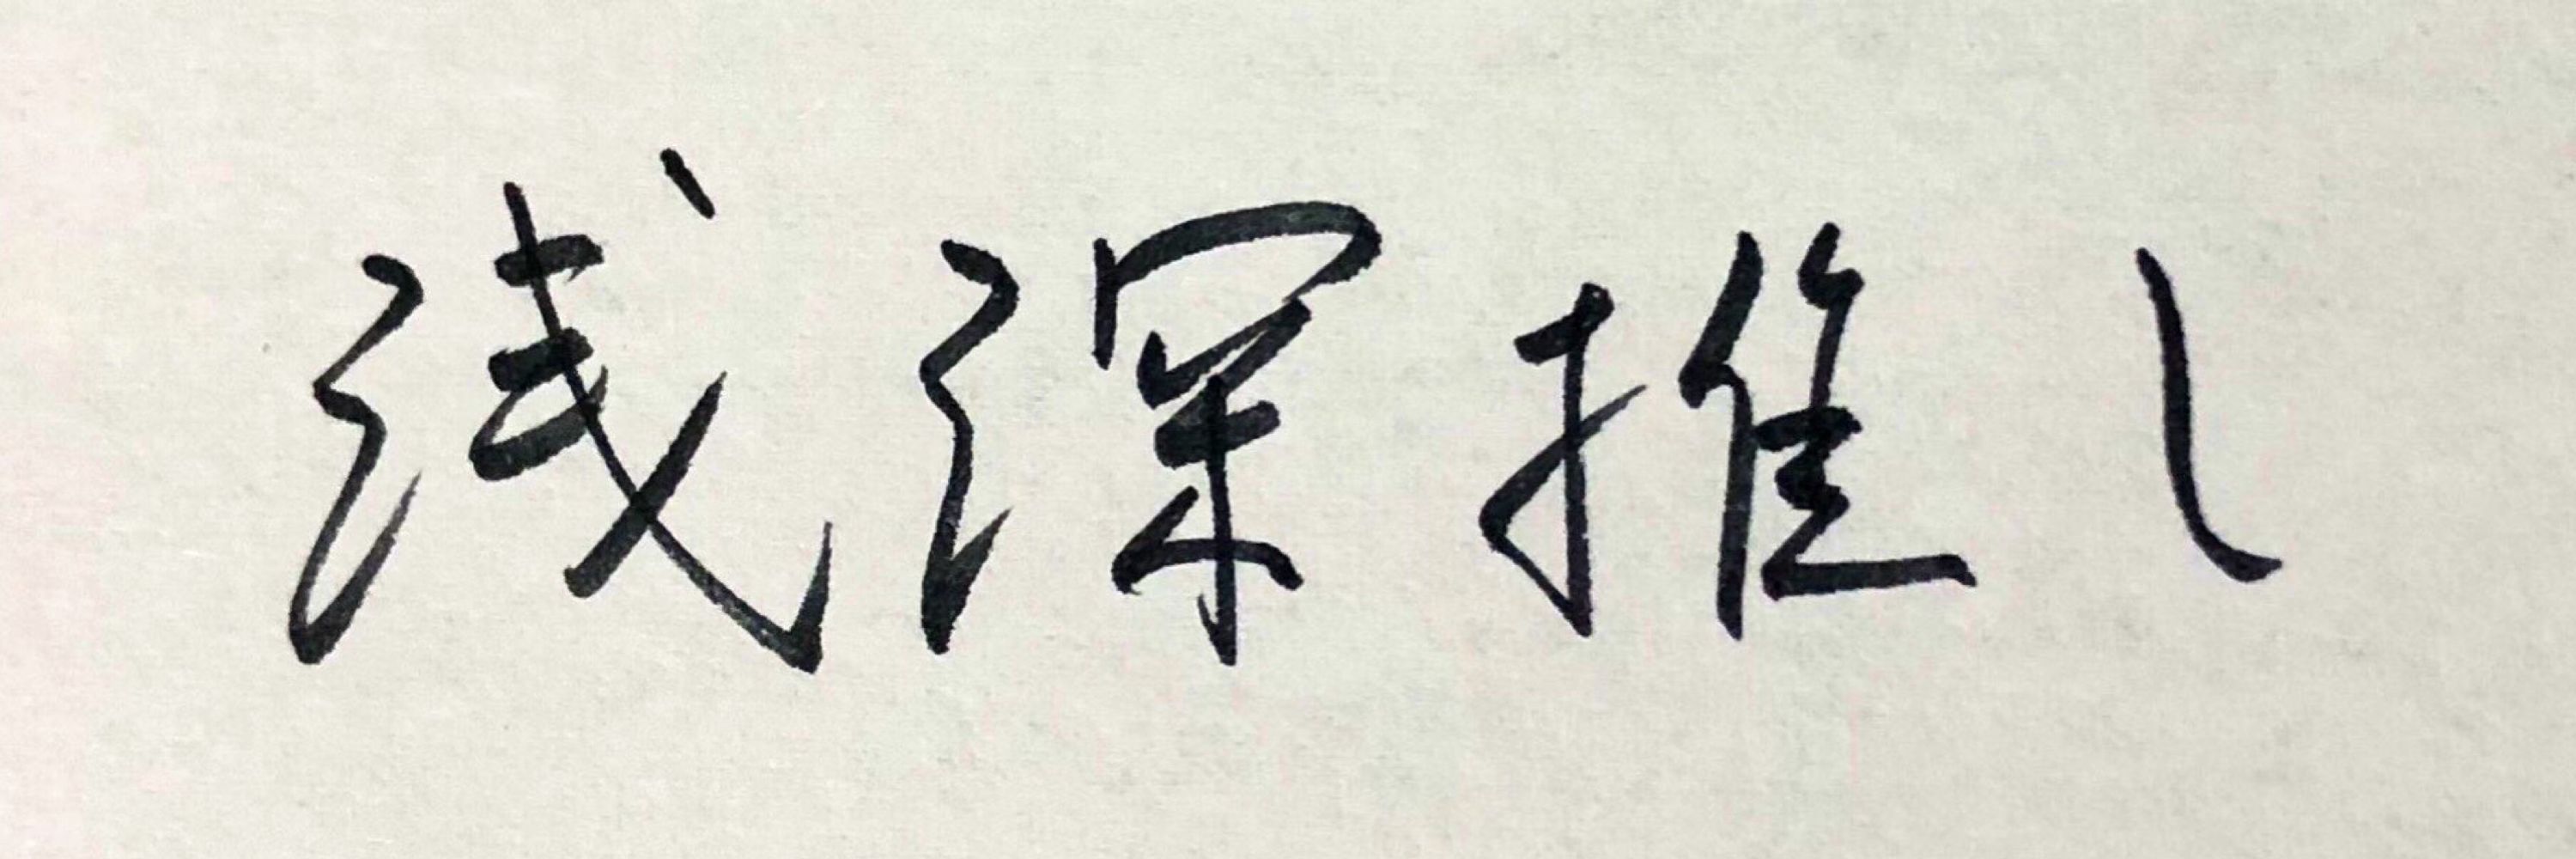 浅深推し